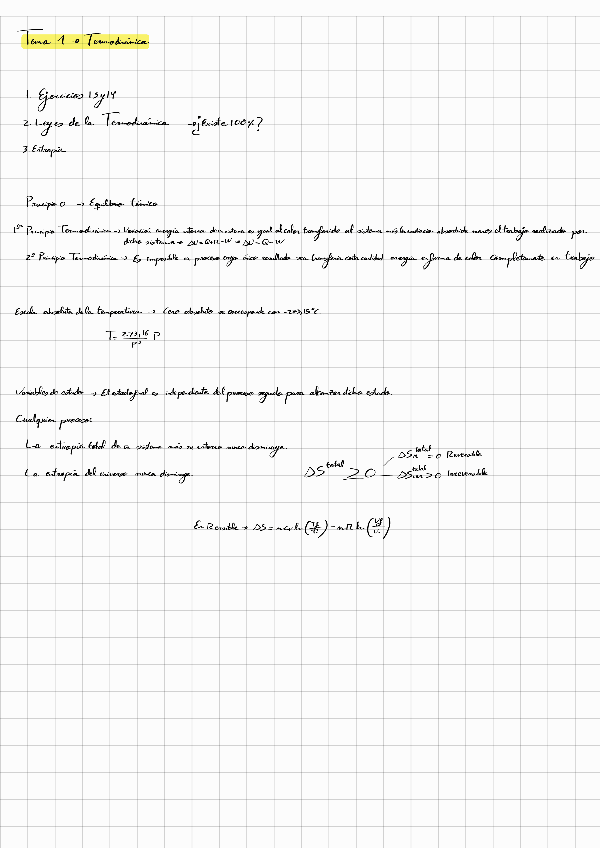 Tema 1 • Termodinámica
1. Ejercicios 13 y 14
2. Leyes de la Termodinámica → ¿Existe 100%?
3. Entropía
Principio 0 → Equilibrio Térmico
1er Principio Termodinámica → Variación energía interna de un sistema es igual al calor transferido al sistema más la radiación absorbida menos el trabajo realizado por
dicho sistema → ΔU=Q+R-W → ΔU=Q-W
2º Principio Termodinámica → Es imposible un proceso cuyo único resultado sea transferir cierta cantidad energía en forma de calor completamente en trabajo
Escala absoluta de la temperatura → Cero absoluto se corresponde con -273,15°C
T = 273,16 / P P
Variables de estado → El estado final es independiente del proceso seguido para alcanzar dicho estado.
Cualquier proceso:
La entropía total de un sistema más su entorno nunca disminuye.
ΔS total ≥ 0
ΔS total = 0 Reversible
La entropía del universo nunca disminuye.
ΔS total > 0 Irreversible
En Reversible → ΔS = n Cv ln (Tf/Ti) - n R ln (Vf/Vi)